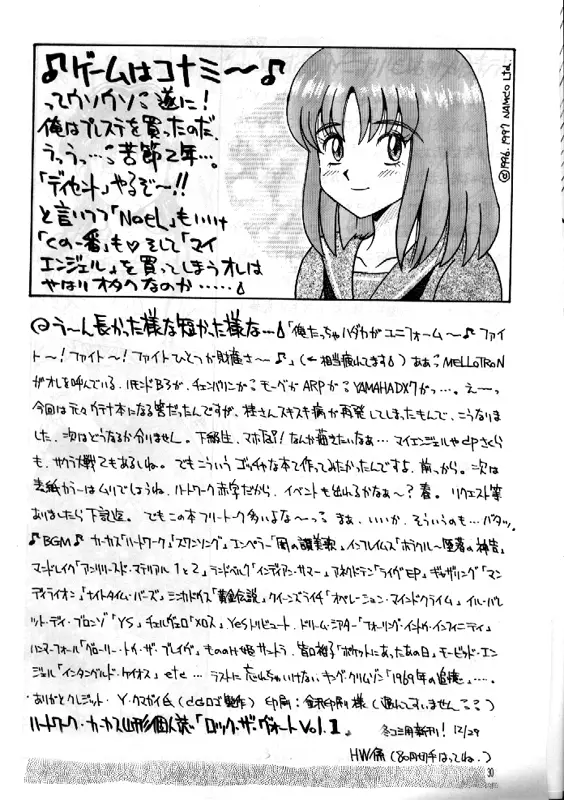 ♪ゲームはコナミ〜♪
ってウソウソ 遂に!
俺はプレステを買ったのだ
うっうっ… 苦節2年…。
「ディセント」やるぞ〜!!
と言いつつ「NoëL」もいいけ
「くの一番」も♡そして「マイ
エンジェル」を買ってしまうオレは
やはりオタクなのか……
©1996, 1997 NAMCO Ltd.
う〜ん長かった様な短かった様な…「俺たっちゃハダカがユニフォーム〜♪ファイ
ト〜!ファイト〜!ファイトひとつが財産さ〜♪」(←相当疲れてます)ああ MELLOTRON
がオレを呼んでいる ハモンドB3が チェンバリンが モーグが ARPが YAMAHA DX7がっ…。え〜っ
今回は元々 本になる筈だったんですが、桂さんスキスキ病が再発してしまったもんで、こうなりま
した、次はどうなるか分りません。下級生、マホ なんか描きたいなぁ… マイエンジェルや さくら
も、サクラ大戦でもあるしね。でもこういうゴッチャな本て作ってみたかったんですよ、前っから。次は
表紙カラーはムリでしょうね、ハートワーク赤字だから、イベントも出れるかなぁ〜?春。リクエスト等
ありましたら下記迄。でもこの本フリートーク多いよな〜っ まぁ、いいか、そういうのも…バタッ。
♪BGM♪カーカス「ハートワーク」「スワンソング」エンペラー「闇の讃美歌」インフレイムス「 神告」
マーシレイク「アンリリースド・マテリアル1と2」ランドベルク「インディアン・サマー」アネクドテン「ライヴEP」ギャザリング「マン
ディライオン」「ナイトタイム・バーズ」ミカドゲイズ「黄金伝説」クイーンズライチ「オペレーション・マインドクライム」イル・バレ
ット・ディ・ブロンゾ「YS」チェルヴェロ「メロス」Yesトリビュート、ドリーム・シアター「フォーリング・イントゥ・インフィニティ」
ハンマーフォール「グローリー・トゥ・ザ・ブレイヴ」もののけ姫サントラ、谷口裕子「ポケットにあったあの日」モービッド・エン
ジェル「インタングルド・ケイオス」etc… ラストに忘れちゃいけない キング・クリムゾン「1969年の追憶」……。
ありがとクレジット・Y・クマガイ氏( ロゴ製作)印刷:金沢印刷様(遅れてすいません)
ハートワーク・カーカス山形個人誌・「ロック・ザ・ヴォート Vol.1」 冬コミ用新刊! 12/29
HW係(80円切手はってね。)
30